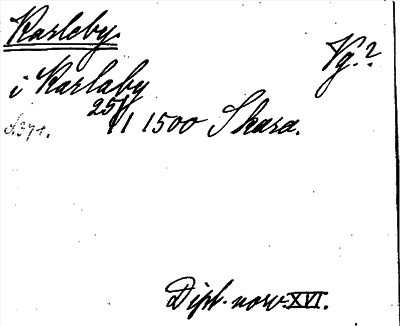 Karleby.
Vg.?
i Karlaby
25/11 1500 Skara.
S. 374.
Dipl. norv. XVI.